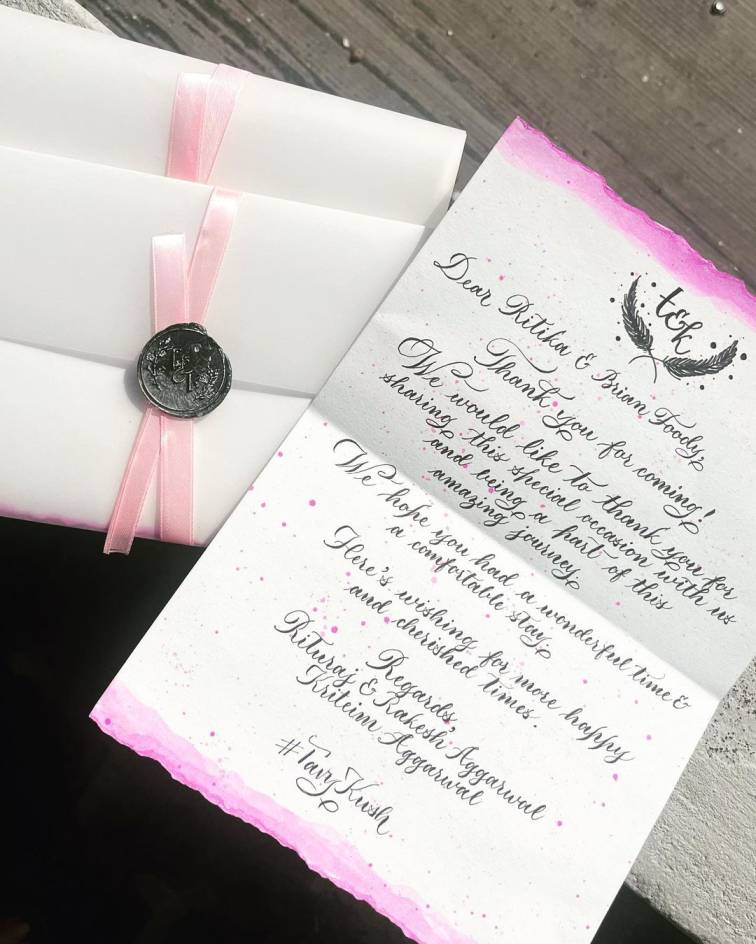 t&k
Dear Ritika & Brian Foody,
Thank you for coming!
We would like to thank you for
sharing this special occasion with us
and being a part of this
amazing journey
We hope you had a wonderful time &
a comfortable stay
Here's wishing for more happy
and cherished times.
Regards,
Rituraj & Rakesh Aggarwal
Kriteim Aggarwal
#TavzKush